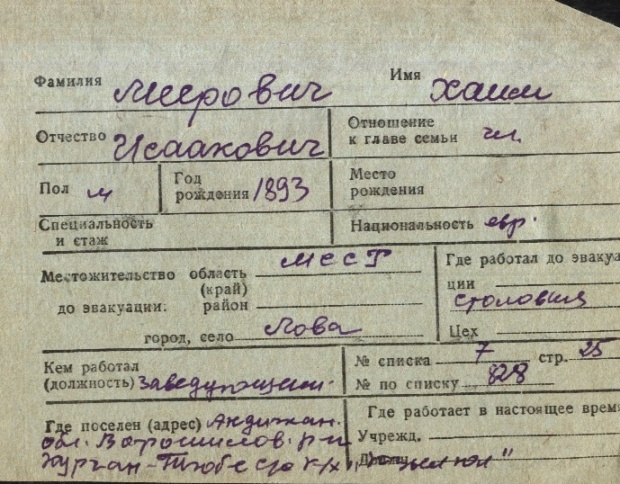 Фамилия Меерович Имя Хаим
Отчество Исаакович Отношение
к главе семьи чл.
Пол м Год рождения 1893 Место рождения
Специальность и стаж Национальность евр.
Местожительство область (край) МССР Где работал до эвакуа
ции
столовия
до эвакуации: район
город, село Лова Цех
Кем работал № списка 7 стр. 25
(должность) заведующим. № по списку 828
Где поселен (адрес) Андижан. Где работает в настоящее врем
обл. Ворошилов. р-н Учрежд.
Курган-Тюбе с/о к/х